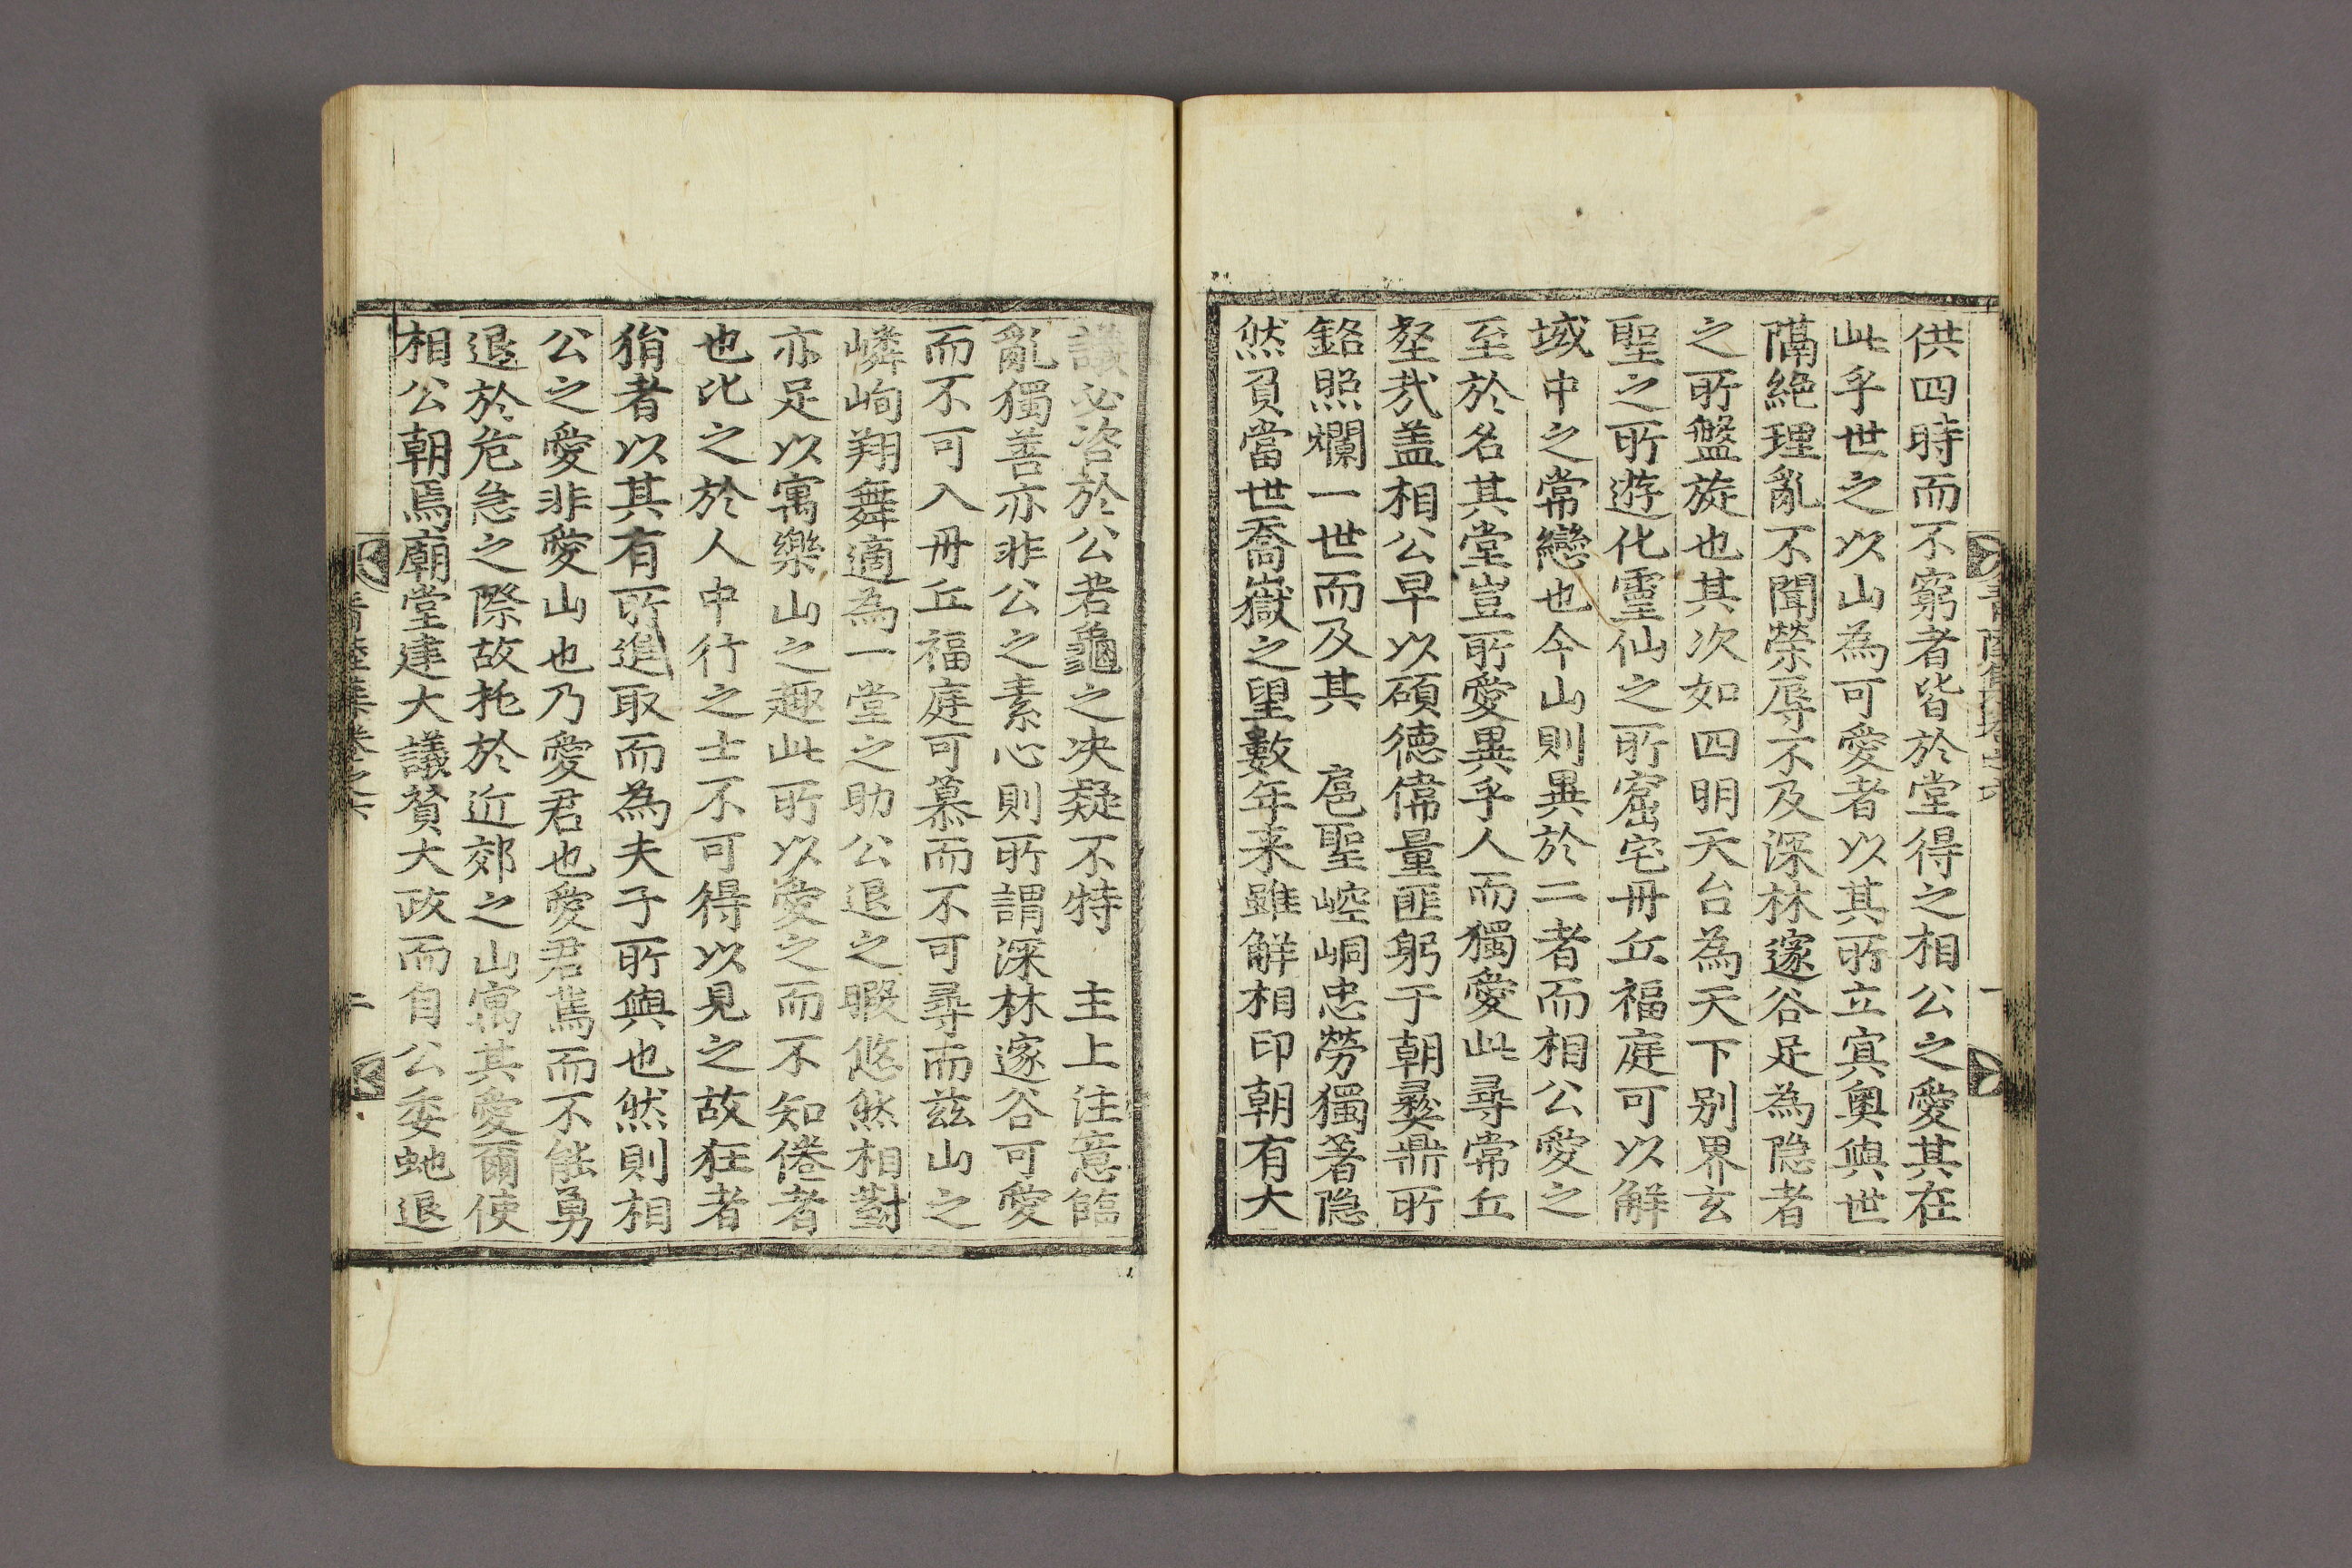 供四時而不窮者皆於堂得之相公之愛其在
此乎世之以山為可愛者以其所立冥奧與世
隔絶理亂不聞榮辱不及深林邃谷足為隐者
之所盤旋也其次如四明天台為天下别界玄
聖之所遊化靈仙之所窟宅丹丘福庭可以解
域中之常戀也今山則異於二者而相公愛之
至於名其堂豈所愛異乎人而獨愛此尋常丘
壑㢤盖相公早以碩德偉量匪躬于朝彛鼎所
銘照爛一世而及其 扈聖崆峒忠勞獨著隐
然負當世喬嶽之望數年来雖解相印朝有大
議必咨於公若龜之决疑不特 主上注意臨
亂獨善亦非公之素心則所謂深林邃谷可愛
而不可入丹丘福庭可慕而不可尋而兹山之
嶙峋翔舞適為一堂之助公退之暇悠然相對
亦足以寓樂山之趣此所以愛之而不知倦者
也比之於人中行之士不可得以見之故狂者
狷者以其有所進取而為夫子所與也然則相
公之愛非愛山也乃愛君也愛君焉而不能勇
退於危急之際故托於近郊之山寓其愛爾使
相公朝焉廟堂建大議贊大政而自公委虵退
青陸集卷之六